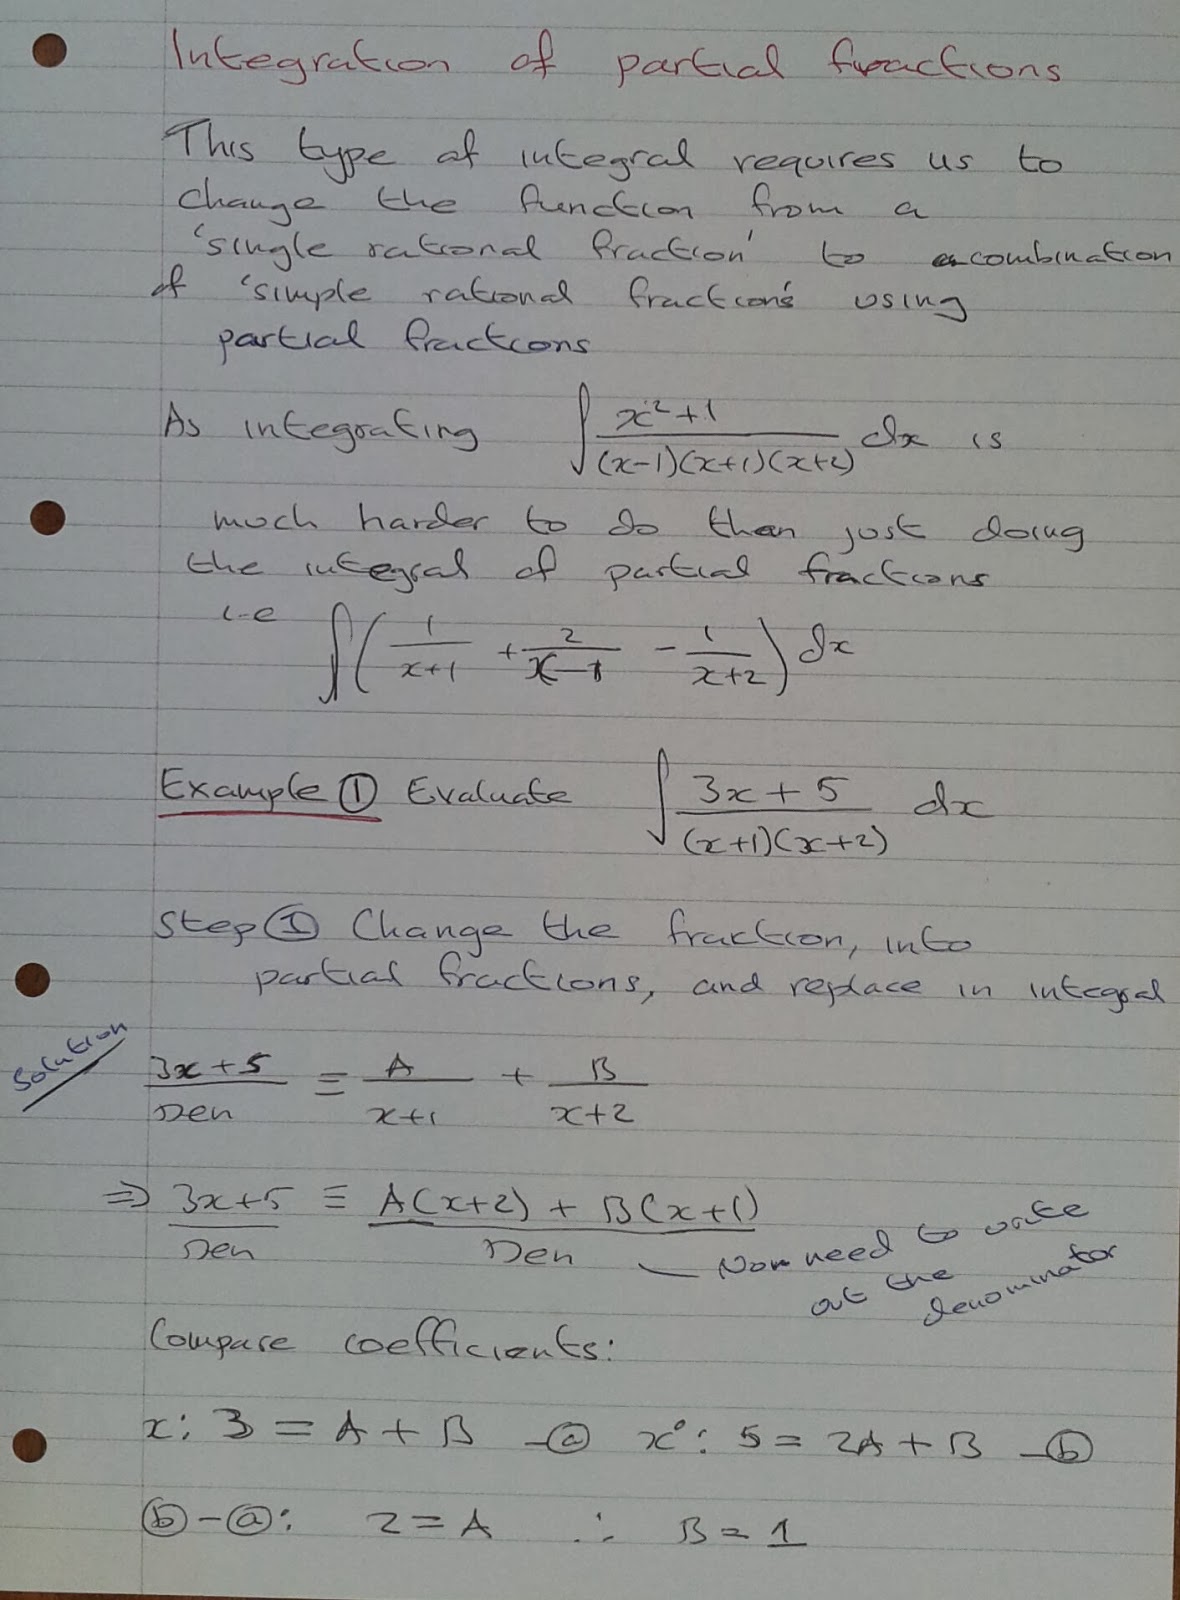 Integration of partial fractions
This type of integral requires us to
change the function from a
'single rational fraction' to a combination
of 'simple rational fractions' using
partial fractions
As integrating ∫ (x²+1)/((x-1)(x+1)(x+2)) dx is
much harder to do than just doing
the integral of partial fractions
i.e ∫ ( 1/(x+1) + 2/(x-1) - 1/(x+2) ) dx
Example ① Evaluate ∫ (3x+5)/((x+1)(x+2)) dx
Step ① Change the fraction, into
partial fractions, and replace in integral
Solution
(3x+5)/Den ≡ A/(x+1) + B/(x+2)
⇒ (3x+5)/Den ≡ (A(x+2) + B(x+1))/Den
Non need to write
out the
denominator
Compare coefficients:
x: 3 = A + B - ⓐ x⁰: 5 = 2A + B - ⓑ
ⓑ - ⓐ: 2 = A ∴ B = 1